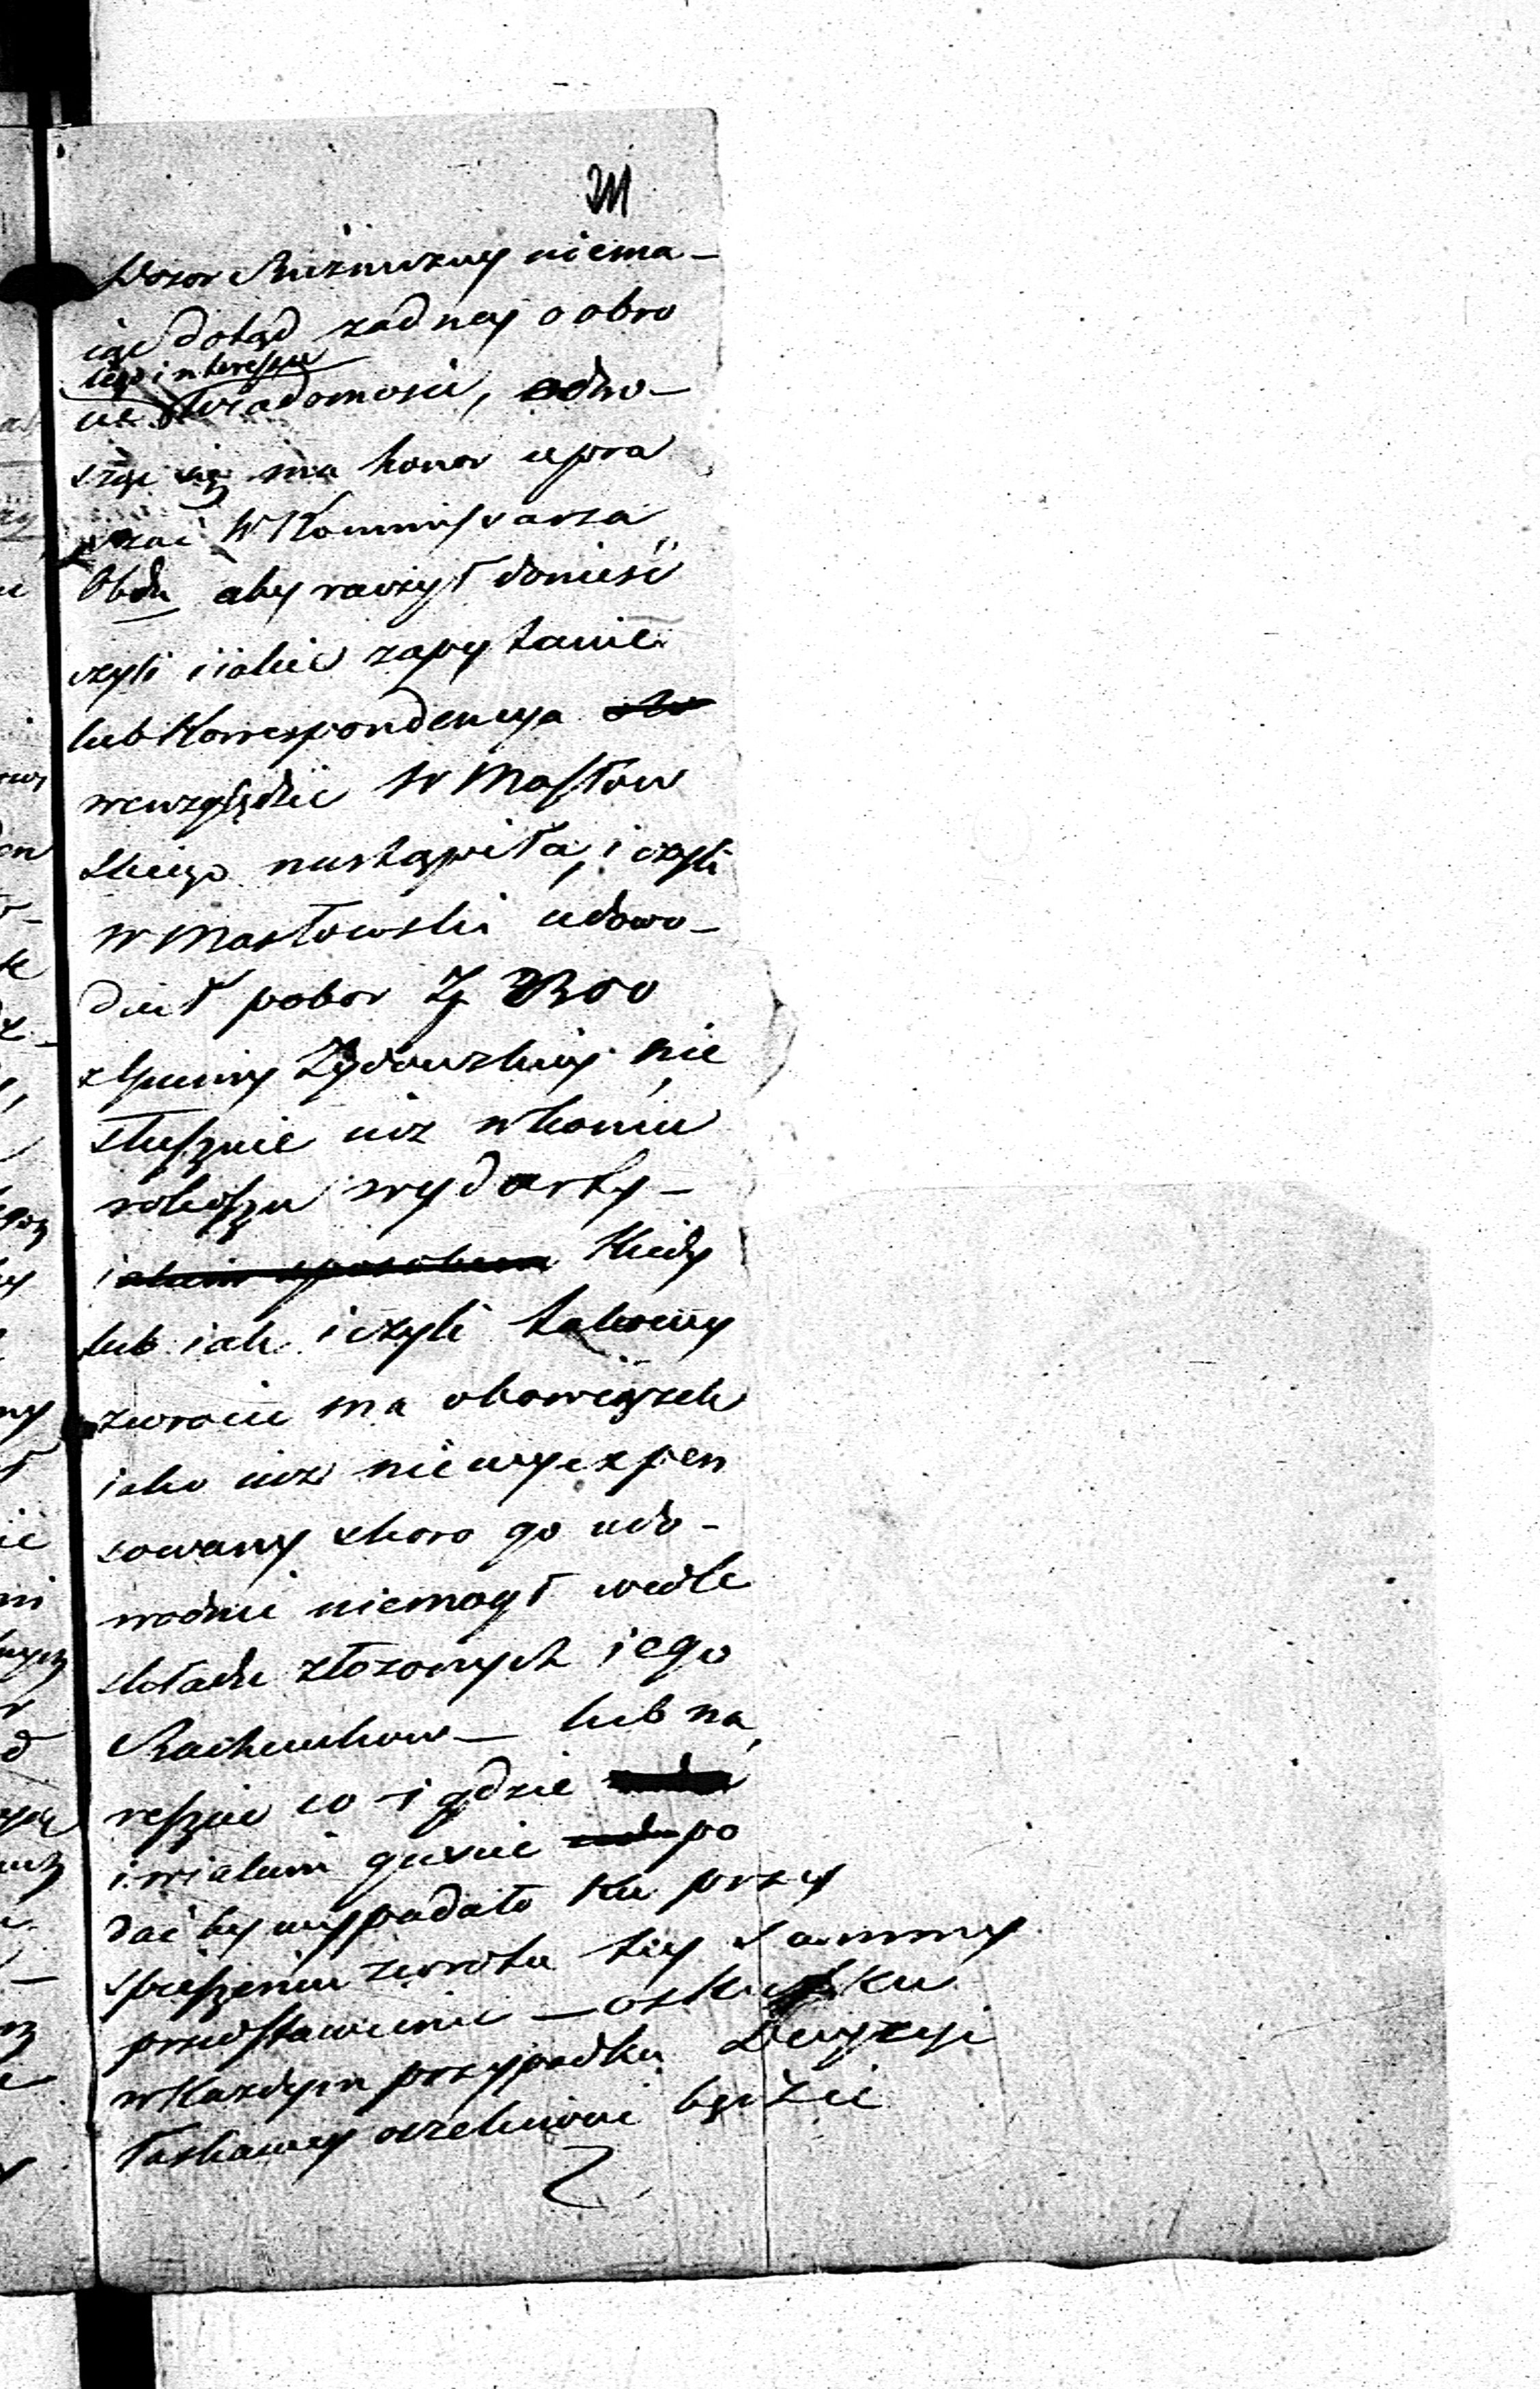 211
Dozor Bóżniczny niema-
iąc dotąd żadney o obro
tego interessu
cie wiadomości, odno-
sząc się ma honor upra
szać W Kommissarza
Obdu aby raczył donieść
czyli i iakie zapytanie
lub Korrespondencya
wewzględzie W Masłow
skiego nastąpiła, i czyli
W Masłowski udowo-
dnił pobor Zł 2300
z Gminy Żydowskiey nie
słusznie iuż w koncu
roboszu wydarty-
iakim sposobem Kiedy
lub iak i czyli takowy
zwrocic ma obowiązek
iako iuż niewyexpen
sowany skoro go udo-
wodnic niemogł wedle
składu złozonych iego
Rachunkow - lub na,
reszcie co i gdzie
i w iakim guscie po
dać by wypadało ku przy
spieszeniu zwrotu tey Summy
przedstawienie - oskutku
w Kazdym przypadku Decyzyi
łaskawey oczekiwac będzie